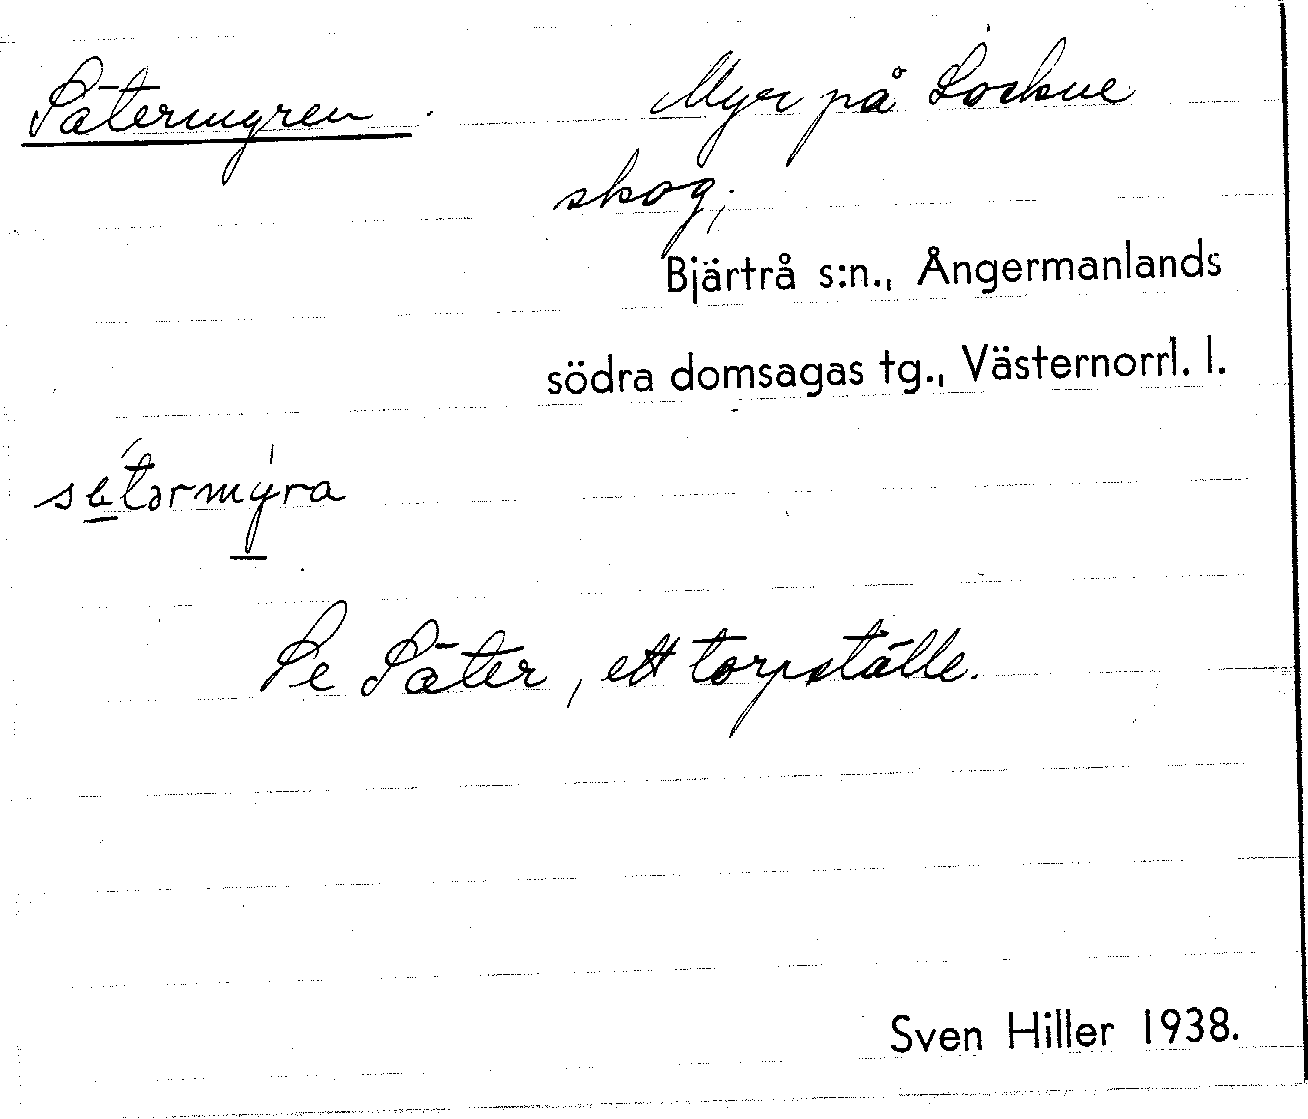 Sätermyren. Myr på Lockne
skog;
Bjärtrå s:n., Ångermanlands
södra domsagas tg., Västernorrl. l.
sätərmýra
Se Säter, ett torpställe.
Sven Hiller 1938.